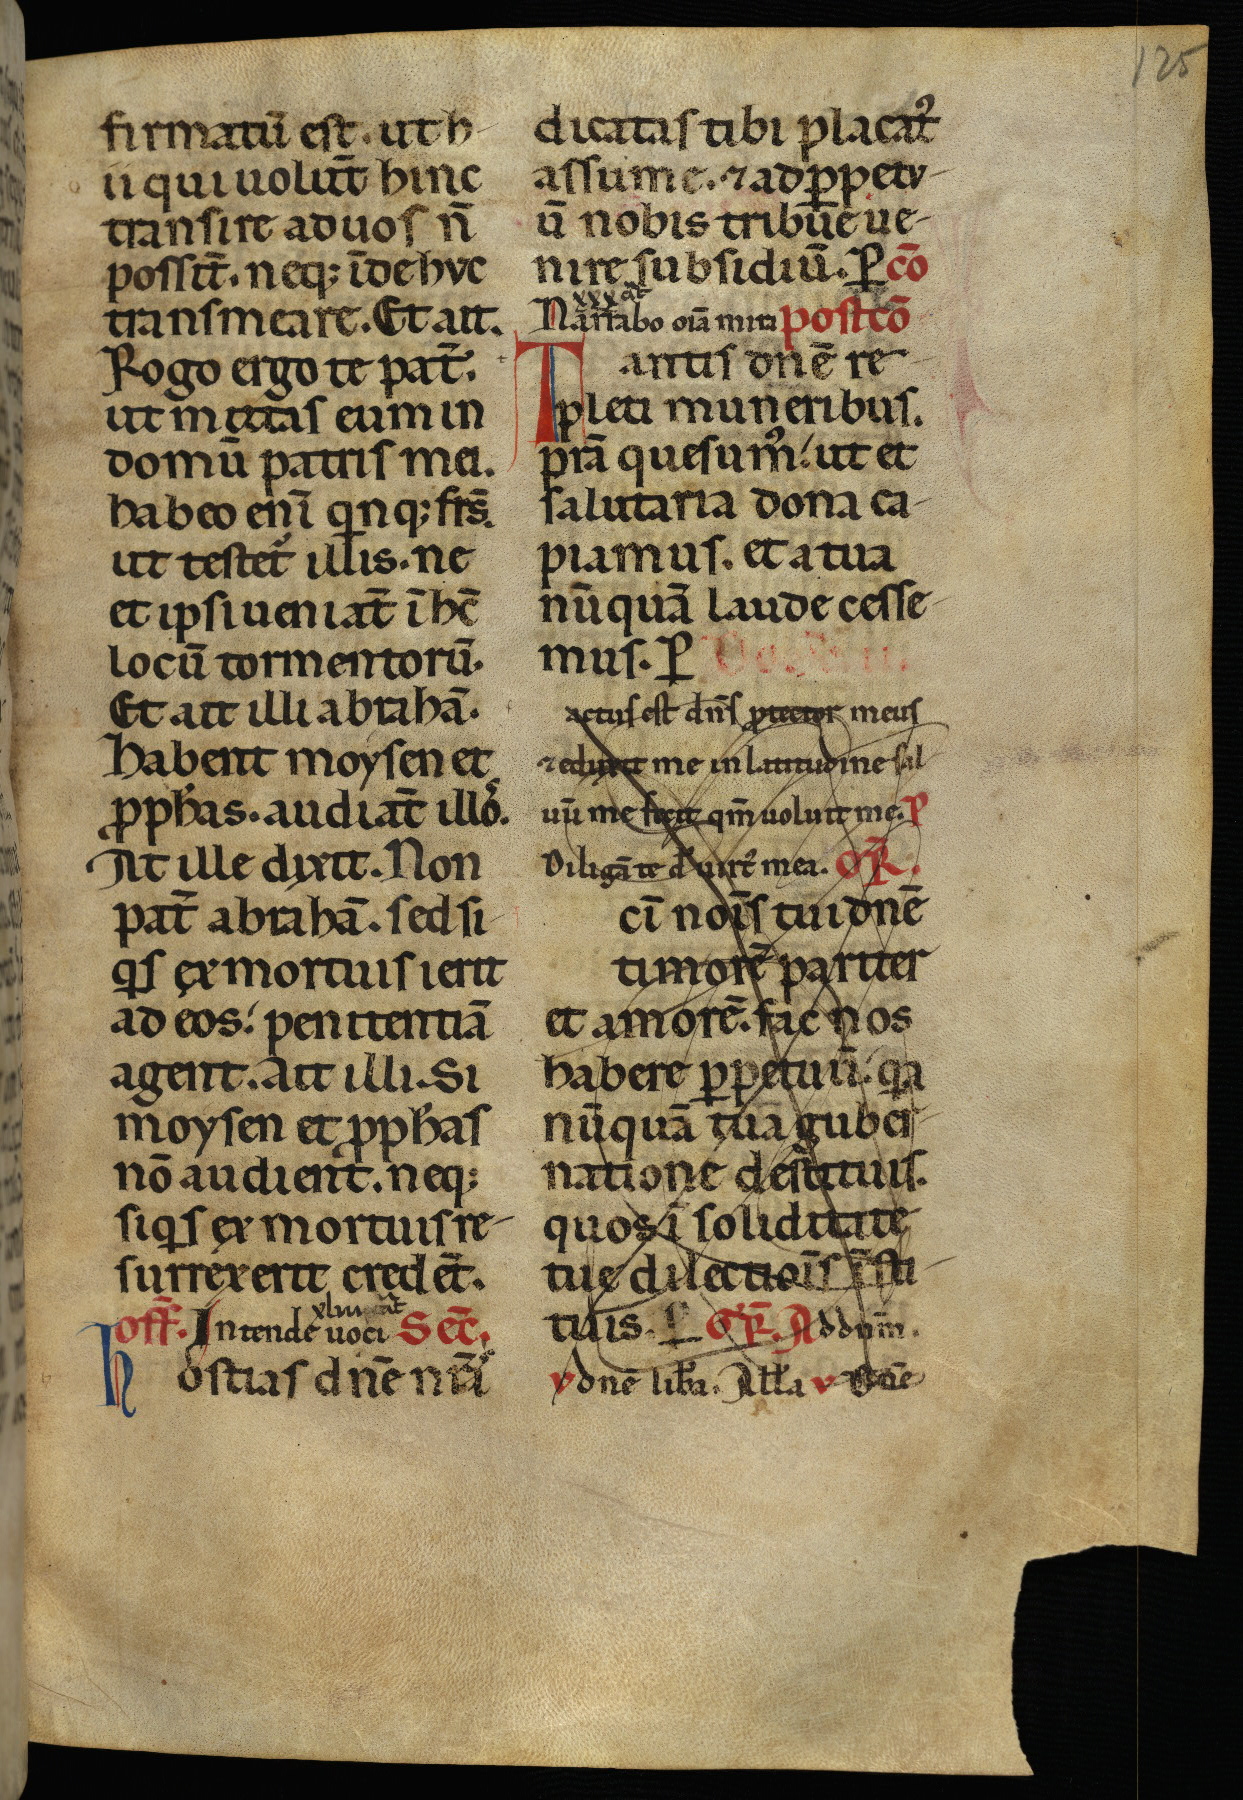 125
firmatū est. ut h-
ii qui uolūt hinc
transire ad uos n̄
possīt. neq; īde huc
transmeare. Et ait.
Rogo ergo te pat̄.
ut mittas eum in
domū patris mei.
habeo enī qnq; frs̄.
ut testet᷑ illis. ne
et ipsi ueniāt ī hc̄
locū tormentorū.
Et ait illi abrahā.
habent moysen et
ꝓphas. audiāt illos.
At ille dixit. Non
pat̄ abrahā. sed si
qs ex mortuis ierit
ad eos. penitentiā
agent. Ait illi. Si
moysen et ꝓphas
nō audient. neq;
si qs ex mortuis re-
surrexerit credēt.
off̄. Intende uoci xliiii Sec̄.
hostias dn̄e nr̄i
dicatas tibi placat᷑
assume. ⁊ ad ꝑpetu-
ū nobis tribue ue-
nire subsidiū. P̱ cō
Narrabo oīa miri postcō
Tantis dn̄e re-
pleti muneribus.
pr̄a quesumꝰ. ut et
salutaria dona ca-
piamus. et a tua
nūquā laude cesse-
mus. P̱
actus est dn̄s ꝓtector meus
⁊ eduxit me in latitudine sal
uū me fecit qm̄ uoluit me. P̄
Diligā te d᷑ uirt᷑ mea. OR̄.
cī noīs tui dn̄e
timorē pariter
et amorē. fac nos
habere ꝑpetuū. qa
nūquā tua guber-
natione destituis.
quos ī soliditate
tue dilectiōis īsti-
tuis. P̱ GR̄. Ad dn̄m.
v dn̄e liƀa. Alla v Dn̄e